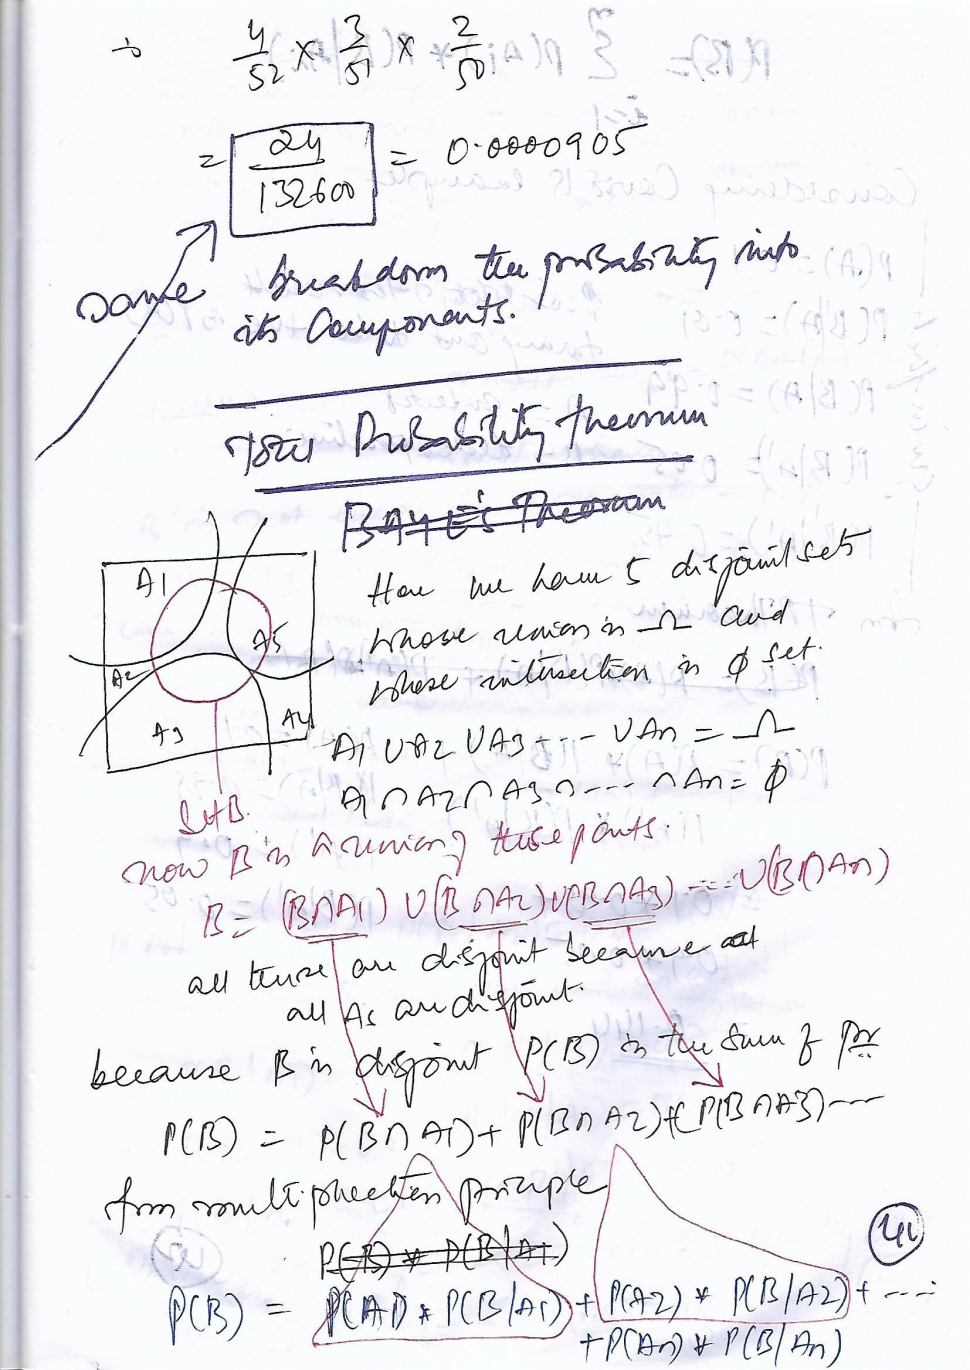 ∴ 4/52 × 3/51 × 2/50
= 24/132600 = 0.0000905
same breakdown the probability into
its Components.
Total Probability Theorum
BAYE's Theorum
A1
A2
A3
A4
A5
Set B.
Here we have 5 disjoint sets
whose union is Ω and
whose intersection is ϕ set.
A1 ∪ A2 ∪ A3 ---- ∪ An = Ω
A1 ∩ A2 ∩ A3 ∩ ---- ∩ An = ϕ
now B is a union of these parts.
B = (B∩A1) ∪ (B∩A2) ∪ (B∩A3) ---- ∪ (B∩An)
all these are disjoint because
all As are disjoint.
because B is disjoint P(B) is the sum of pr
P(B) = P(B∩A1) + P(B∩A2) + P(B∩A3) ----
from multiplication principle
P(B) * P(B/A1)
P(B) = P(A1) * P(B/A1) + P(A2) * P(B/A2) + ----
+ P(An) * P(B/An)
41